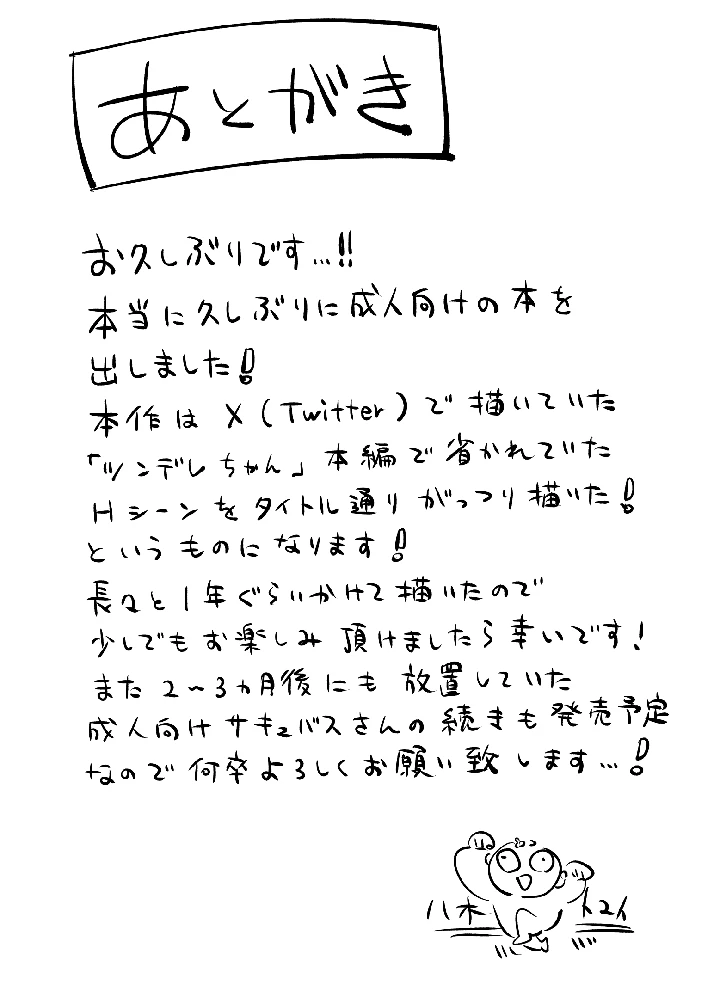 あとがき
お久しぶりです…!!
本当に久しぶりに成人向けの本を
出しました!
本作は X(Twitter)で描いていた
「ツンデレちゃん」本編で省かれていた
Hシーンをタイトル通りがっつり描いた!
というものになります!
長々と1年ぐらいかけて描いたので
少しでもお楽しみ頂けましたら幸いです!
また2〜3ヵ月後にも放置していた
成人向けサキュバスさんの続きも発売予定
なので何卒よろしくお願い致します…!
八木 トユイ